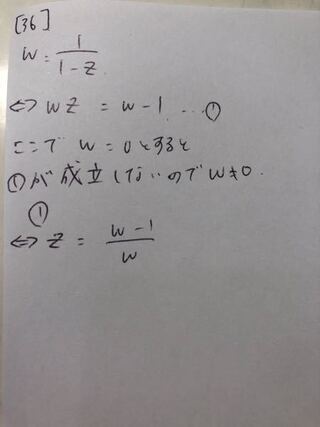 [36]
w = 1/(1-z)
⇔ wz = w-1 … ①
ここで w = 0とすると
①が成立しないのでw≠0.
①
⇔ z = (w-1)/w